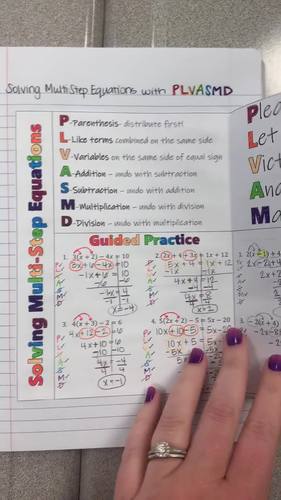 Solving MultiStep Equations with PLVASMD
Solving Multi-Step Equations
P-Parenthesis- distribute first!
L-Like terms combined on the same side
V-Variables on the same side of equal sign
A-Addition - undo with subtraction
S-Subtraction - undo with addition
M-Multiplication - undo with division
D-Division - undo with multiplication
Plea
Let
Vict
And
Ma
Guided Practice
1. 3(x + 2) - 4x = 10
3x+6 -4x = 10
-1x + 6 = 10
-6 -6
-1x = 4
-1 -1
x = -4
1x + 12
5x + 4 = 1x + 12
-1x -1x
4x + 4 = 12
x = 2
3. 4(x + 3) - 2 = 6
4x + 12 - 2 = 6
4x + 10 = 6
-10 -10
4x = -4
4 4
x = -1
4. 5(2x + 2) - 5 = 5x - 20
10x + 10 - 5 = 5x -
10x + 5 = 5x
-5x